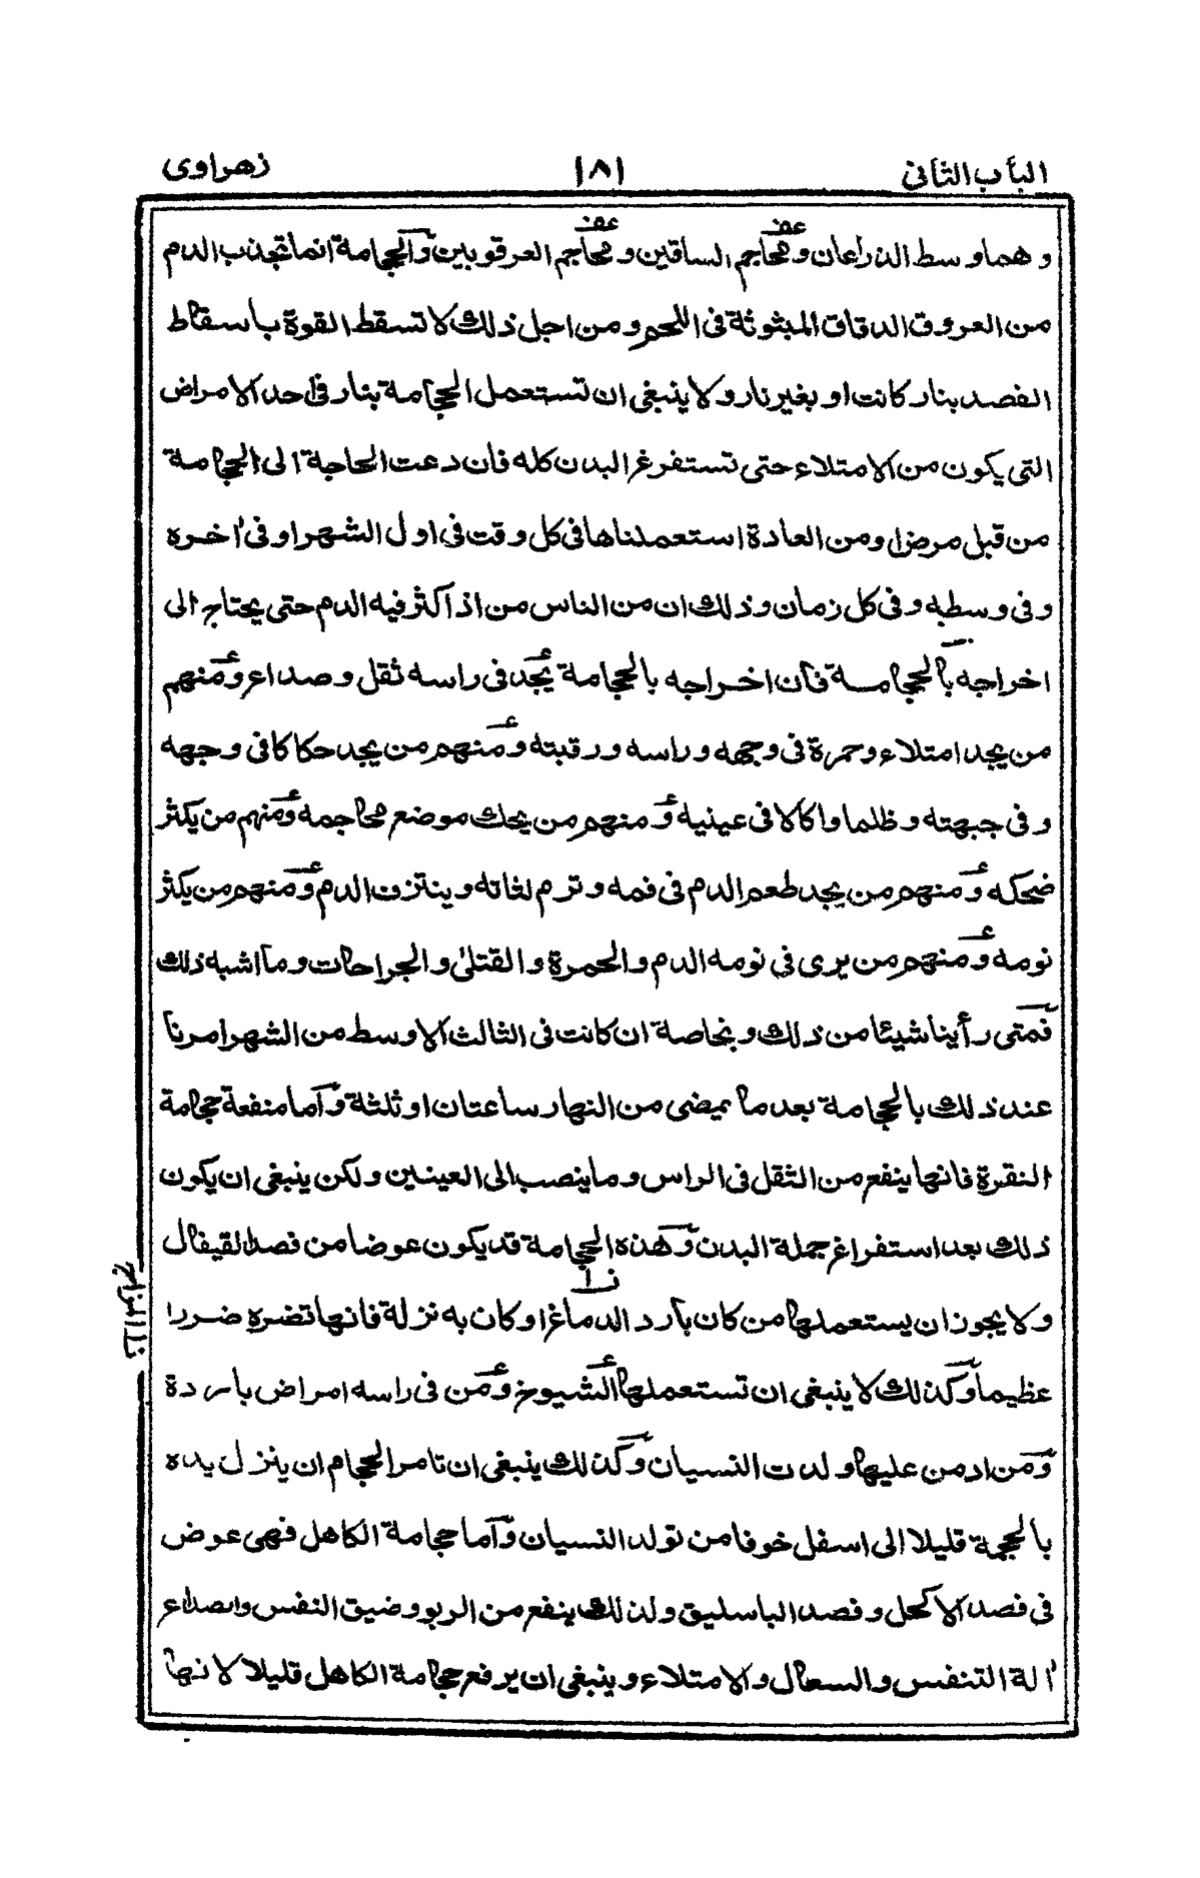 الباب الثاني ١٨١ زهراوى
وهما وسط الذراعان ومحاجم الساقين ومحاجم العرقوبين والحجامة انما تجذب الدم
من العروق الدقاق المبثوثة فى اللحم ومن اجل ذلك لا تسقط القوة باسقاط
الفصد بنار كانت او بغير نار ولا ينبغى ان تستعمل الحجامة بنار فى احد الامراض
التى يكون من الامتلاء حتى تستفرغ البدن كله فان دعت الحاجة الى الحجامة
من قبل مرض او من العادة استعملناها فى كل وقت فى اول الشهر او فى اخره
وفى وسطه وفى كل زمان وذلك ان من الناس من اذا كثر فيه الدم حتى يحتاج الى
اخراجه بالحجامة فان اخراجه بالحجامة يجد فى راسه ثقل وصداع ومنهم
من يجد امتلاء وحمرة فى وجهه وراسه ورقبته ومنهم من يجد حكاكا فى وجهه
وفى جبهته وظلما واكالا فى عينيه ومنهم من يحك موضع محاجمه ومنهم من يكثر
ضحكه ومنهم من يجد طعم الدم فى فمه وترم لثاته وينتزف الدم ومنهم من يكثر
نومه ومنهم من يرى فى نومه الدم والحمرة والقتلى والجراحات وما اشبه ذلك
فمتى رأينا شيئا من ذلك وبخاصة ان كانت فى الثالث الاوسط من الشهر امرنا
عند ذلك بالحجامة بعد ما يمضى من النهار ساعتان او ثلثة واما منفعة حجامة
النقرة فانها ينفع من الثقل فى الراس وما ينصب الى العينين ولكن ينبغى ان يكون
ذلك بعد استفراغ جملة البدن وهذه الحجامة قد يكون عوضا من فصد القيفال
ولا يجوز ان يستعملها من كان بارد الدماغ او كان به نزلة فانها تضره ضررا
عظيما وكذلك لا ينبغى ان تستعملها الشيوخ ومن فى راسه امراض باردة
ومن ادمن عليها ولدت النسيان وكذلك ينبغى ان تامر الحجام ان ينزل يده
بالمحجمة قليلا الى اسفل خوفا من تولد النسيان واما حجامة الكاهل فهى عوض
فى فصد الاكحل وفصد الباسليق ولذلك ينفع من الربو وضيق النفس وانصداع
الة التنفس والسعال والامتلاء وينبغى ان يرفع حجامة الكاهل قليلا لانها
المزاج